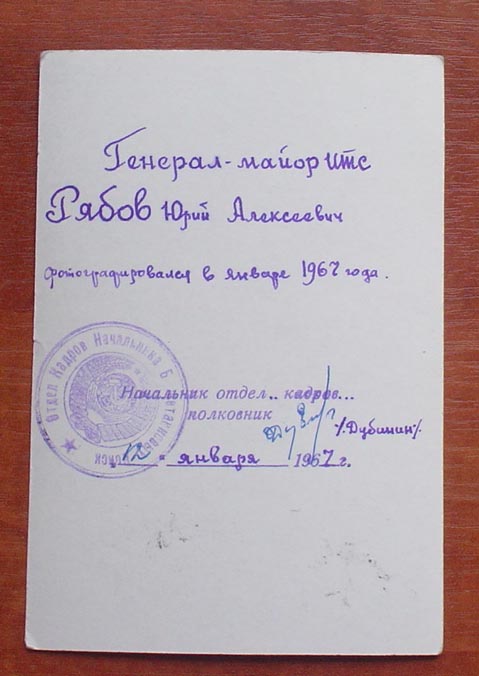 Генерал-майор итс
Рябов Юрий Алексеевич
фотографировался в январе 1967 года.
Отдел Кадров Начальника
Начальник отдел.. кадров...
полковник
/Дубинин/.
"12" января 1967 г.